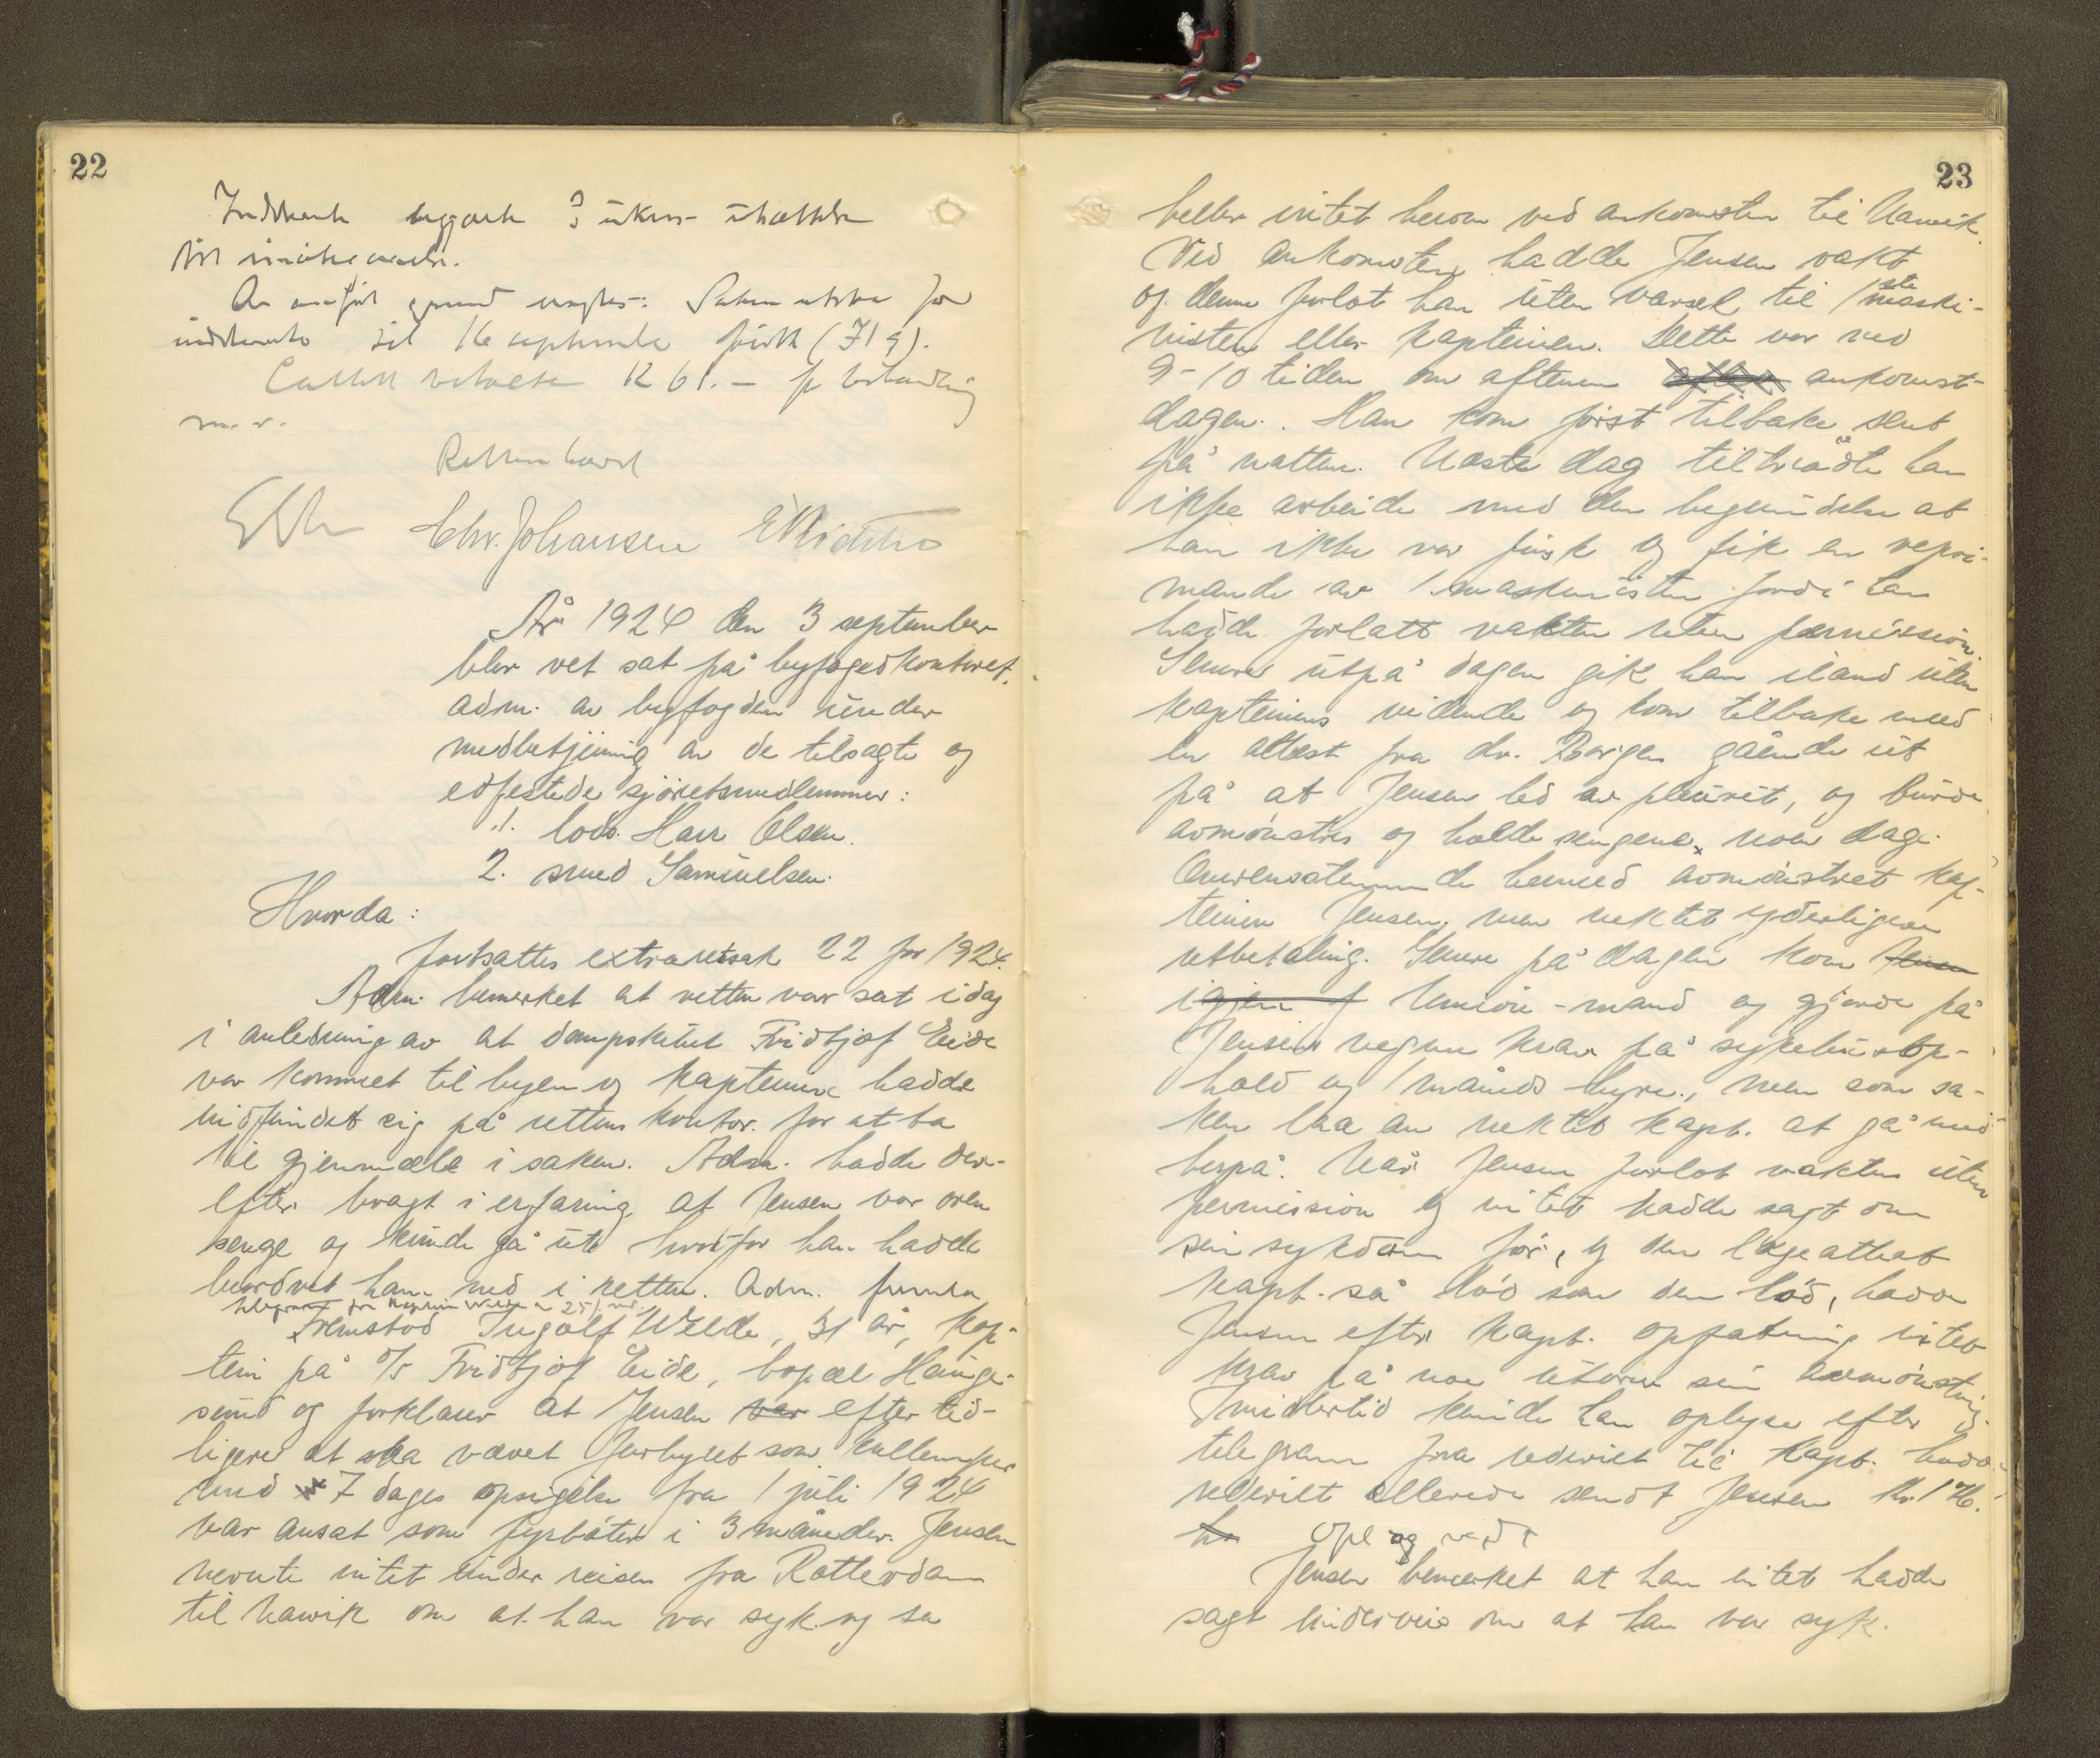 22
Indstevnte begjærte 3 ukers utsættelse
til imøtegaaelse.
Av anført grund Saken utsatt for
indstevnte til 16 september førstk (
Citanten vedtoges K 61.- for behandling
m. v.
Retten hævet
Chr. Johansen
År 1924 den 3 september
blev ret sat på byfogedkontoret,
adm. av byfogden under
medbetjening av de tilsagte og
edfestede sjøretsmedlemmer:
1. lods Hans Olsen.
2. smed Samuelsen.
Hvorda:
fortsattes extraretssak 22 for 1924.
Adm. bemerket at retten var sat idag
i anledning av at dampskibet Fridtjof Eide
var kommet til byen og kapteinen hadde
indfundet sig på rettens kontor for at ta
til gjenmæle i saken. Adm. hadde der-
efter bragt i erfaring at Jensen var oven
senge og kunde gå ute hvorfor han hadde
beordret ham ned i retten. Adm. fremla
telegram fra kaptein Welde av 25/ md.
Fremstod Ingolf Welde, 31 år, kap-
tein på D/S Fridtjof Eide, bopæl Hauge-
sund og forklarer at Jensen var efter tid-
ligere at ha været forhyret som kullemper
med 7 dages opsigelse fra 1 juli 1924
var ansat som fyrbøter i 3 måneder. Jensen
nevnte intet under reisen fra Rotterdam
til Narvik om at han var syk og sa
23
heller intet herom ved ankomsten til Narvik.
Ved ankomsten hadde Jensen vakt
og denne forlot han uten varsel til 1ste maski-
nisten eller kapteinen. Dette var ved
9-10 tiden om aftenen aften ankomst-
dagen. Han kom først tilbake sent
på natten. Næste dag tiltrædte han
ikke arbeide med den begrundelse at
han ikke var frisk og fik en repri-
mande av 1. maskinisten fordi han
hadde forlatt vakten uten permission.
Senere utpå dagen gik han iland uten
kapteinens vidende og kom tilbake med
en attest fra dr. Borgen gående ut
på at Jensen led av pleurit, og burde
avmønstres og holde sengen noen dage.
Overensstemmende hermed avmønstret kap-
teinen Jensen, men nektet yderligere
utbetaling. Senere på dagen kom Jensen
igjen f Union-mand og gjorde på
Jensens vegne krav på sykehusop-
hold og 1 måneds hyre, men som sa-
ken laa an nektet kapt. at gå med
herpå. Når Jensen forlot vakten uten
permission og intet hadde sagt om
sin sykdom før, og den lægeattest
kapt. så lød som den lød, hadde
Jensen efter kapt. opfatning intet
krav på noe utover sin avmønstring.
Imidlertid kunde han oplyse efter
telegram fra rederiet til kapt. hadde
rederiet allerede sendt Jensen kr. 176.
ha Opl og vedt
Jensen bemerket at han intet hadde
sagt underveis om at han var syk.